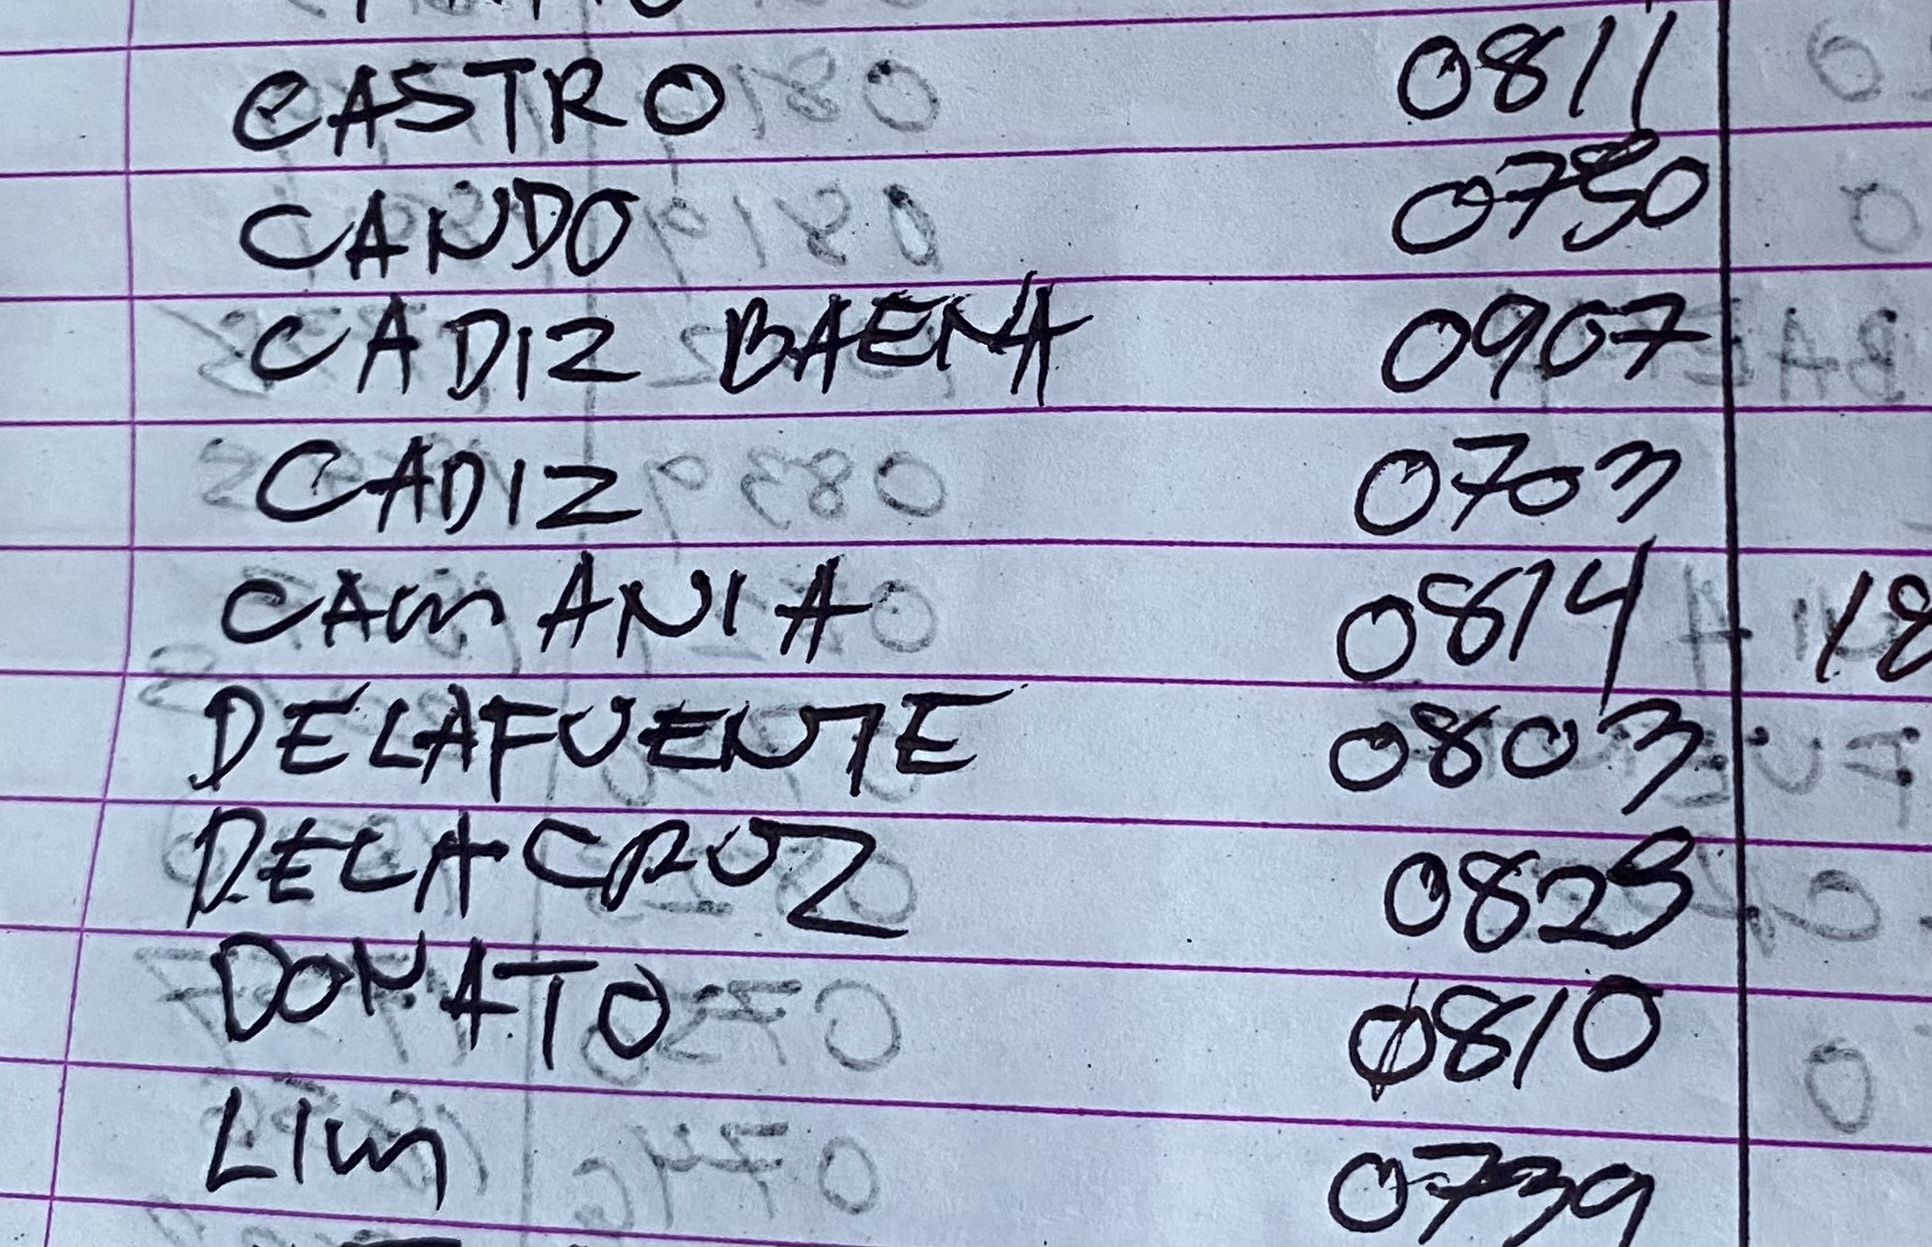 CASTRO 0811
CANDO 0750
CADIZ BAENA 0907
CADIZ 0703
CAMANIA 0814 18
DELAFUENTE 0803
DELACRUZ 0829
DONATO 0810
LIM 0739